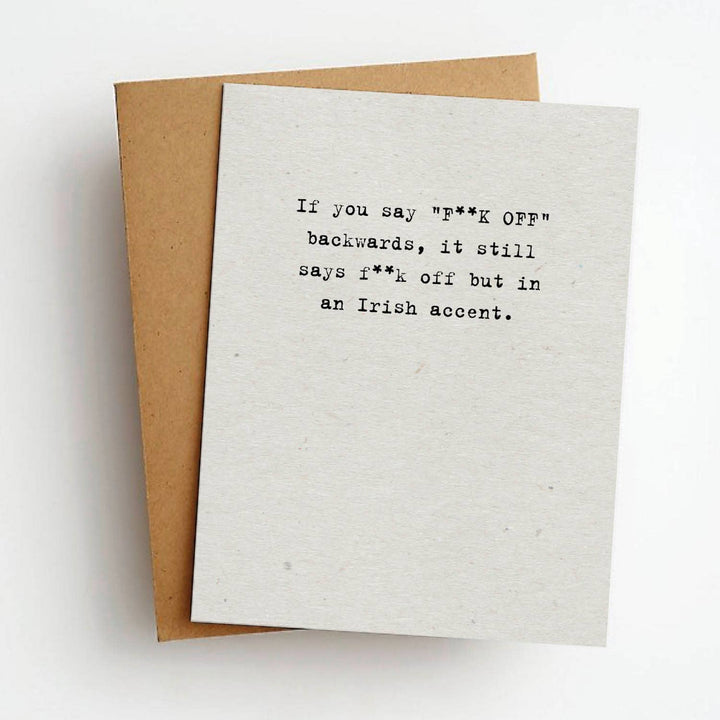 If you say "F**K OFF"
backwards, it still
says f**k off but in
an Irish accent.